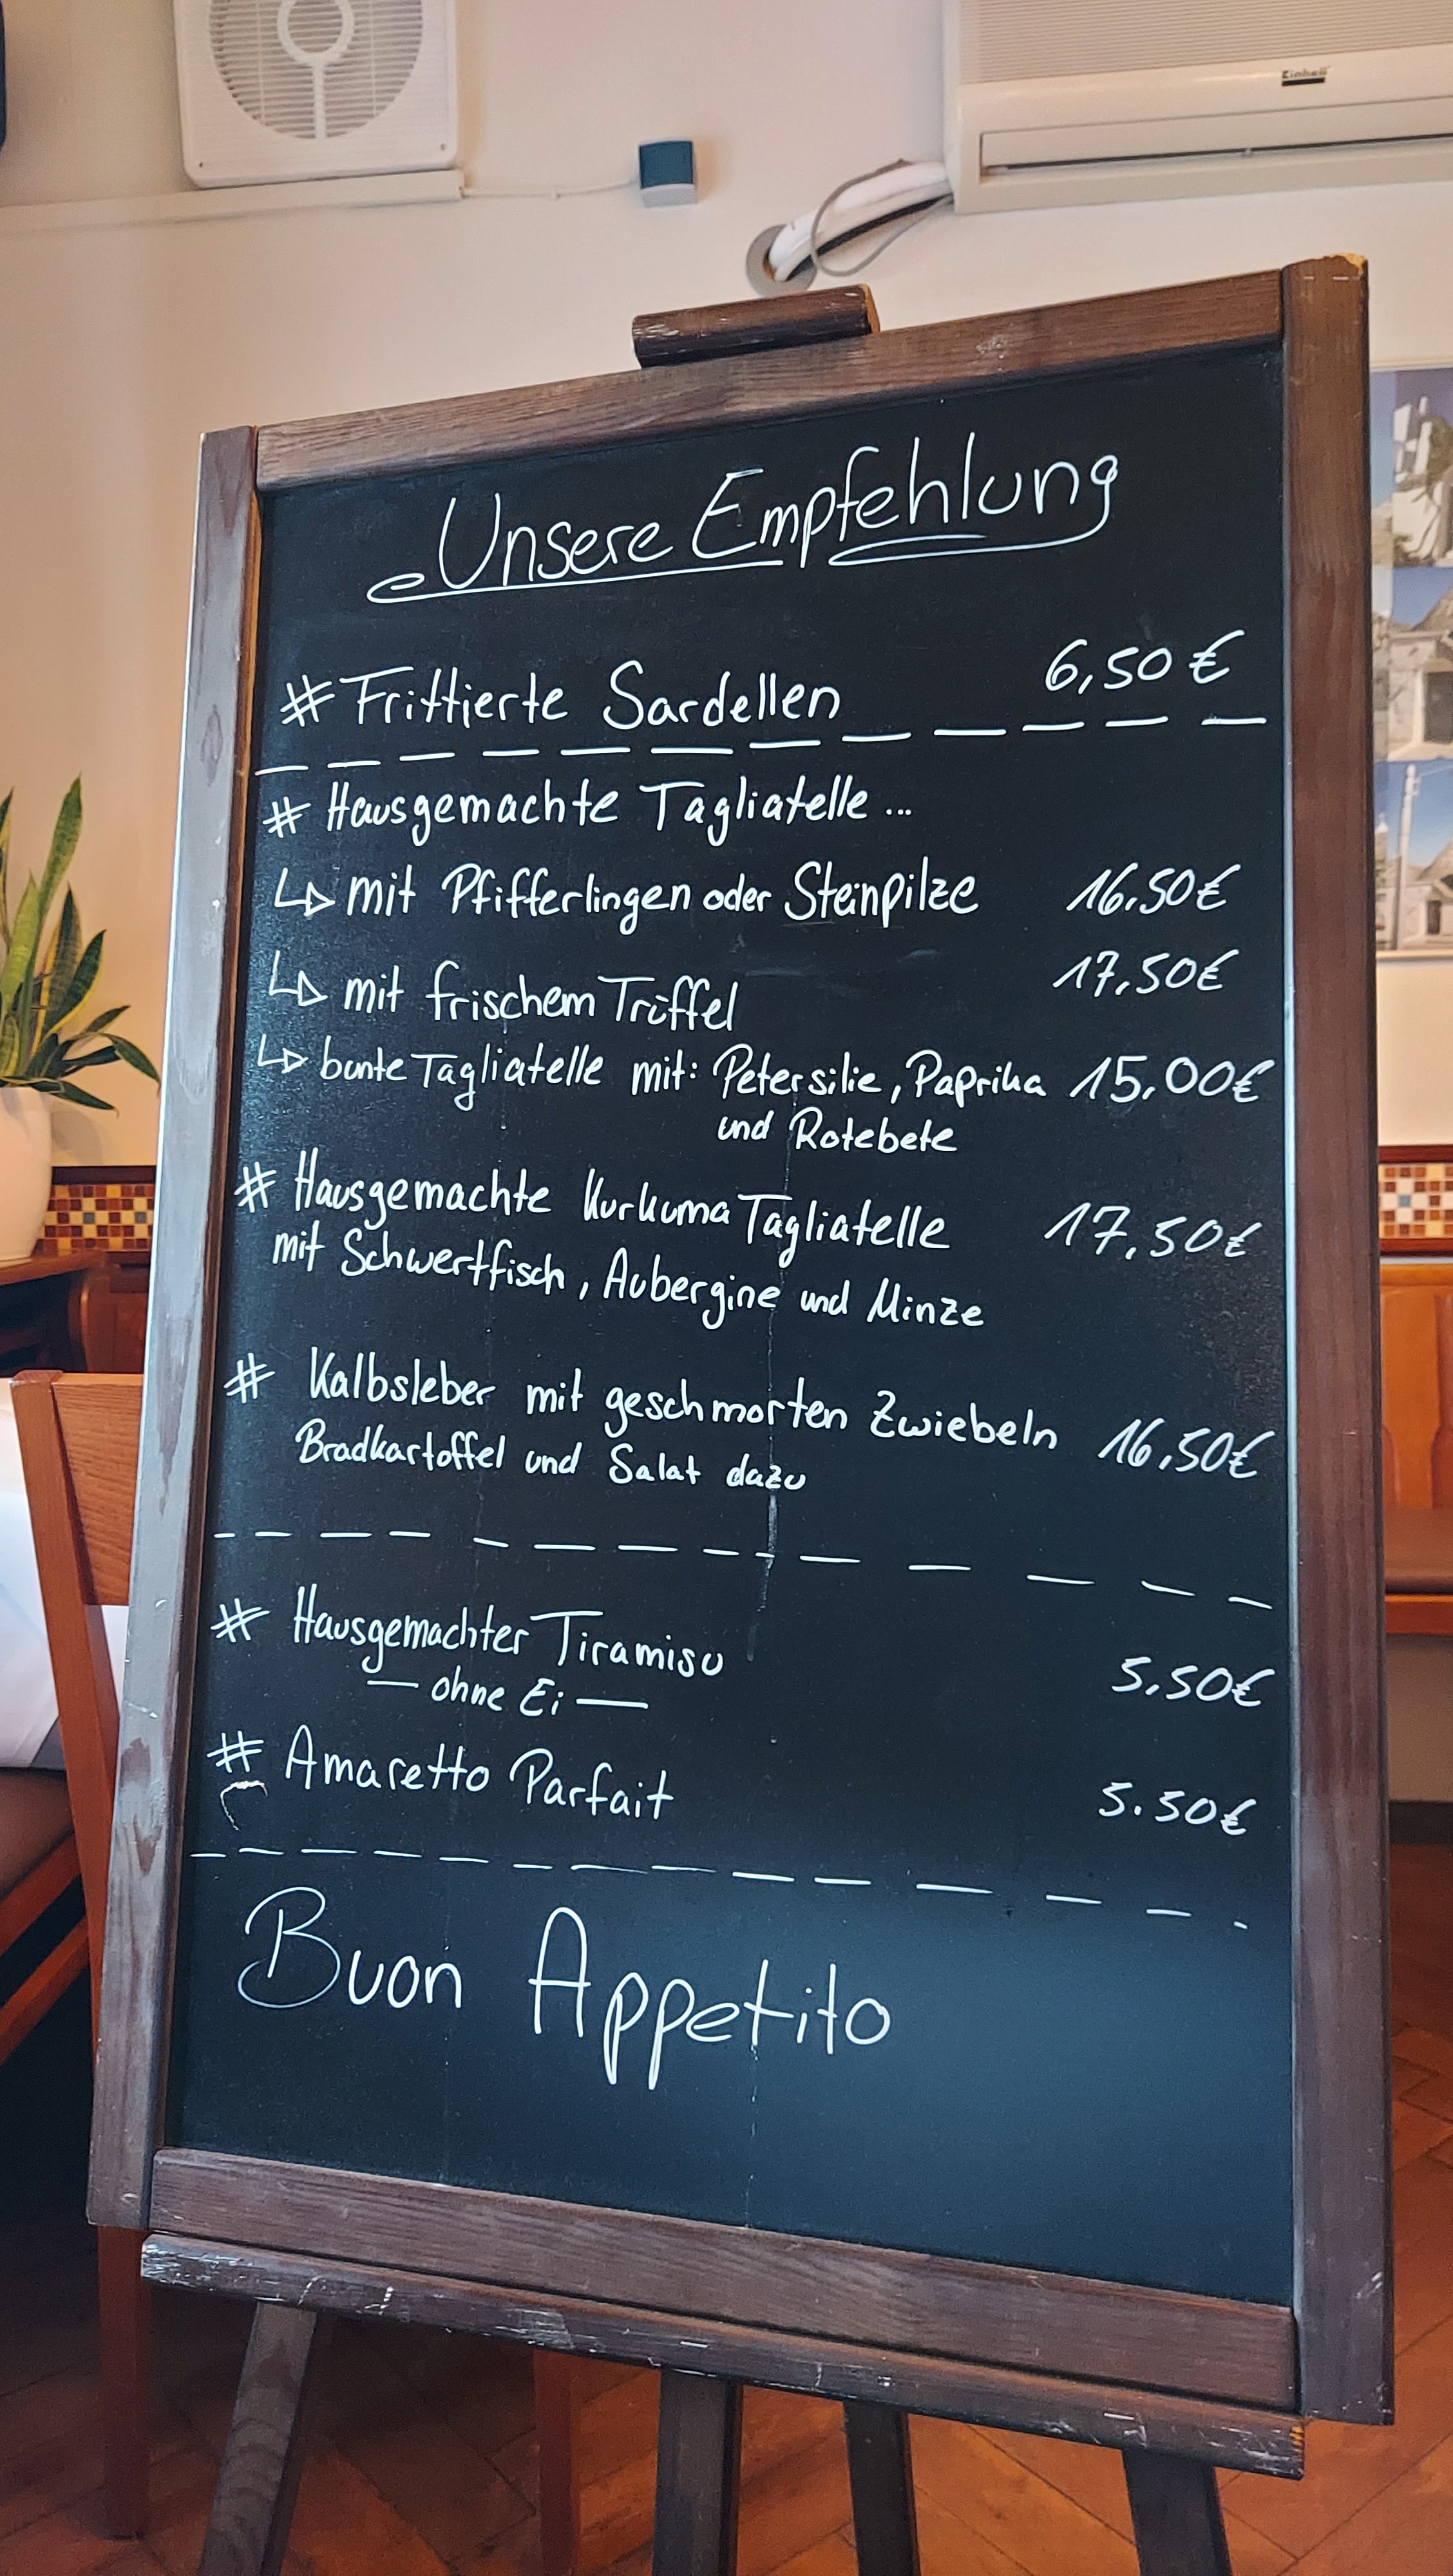 Einhell
Unsere Empfehlung
# Frittierte Sardellen 6,50 €
# Hausgemachte Tagliatelle ...
↳ mit Pfifferlingen oder Steinpilze 16,50€
↳ mit frischem Trüffel 17,50€
↳ bunte Tagliatelle mit: Petersilie, Paprika 15,00€
und Rotebete
# Hausgemachte Kurkuma Tagliatelle 17,50€
mit Schwertfisch, Aubergine und Minze
# Kalbsleber mit geschmorten Zwiebeln 16,50€
Bradkartoffel und Salat dazu
# Hausgemachter Tiramisu 5.50€
— ohne Ei —
# Amaretto Parfait 5.50€
Buon Appetito